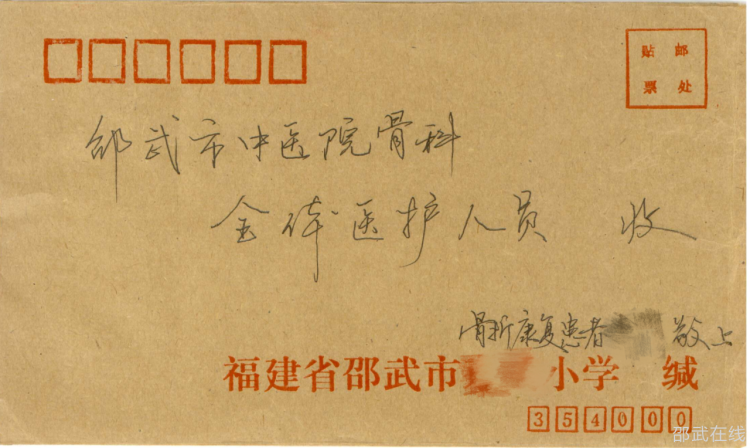 贴 邮
票 处
邵武市中医院骨科
全体医护人员 收
骨折康复患者 敬上
福建省邵武市 小学 缄
354000
邵武在线